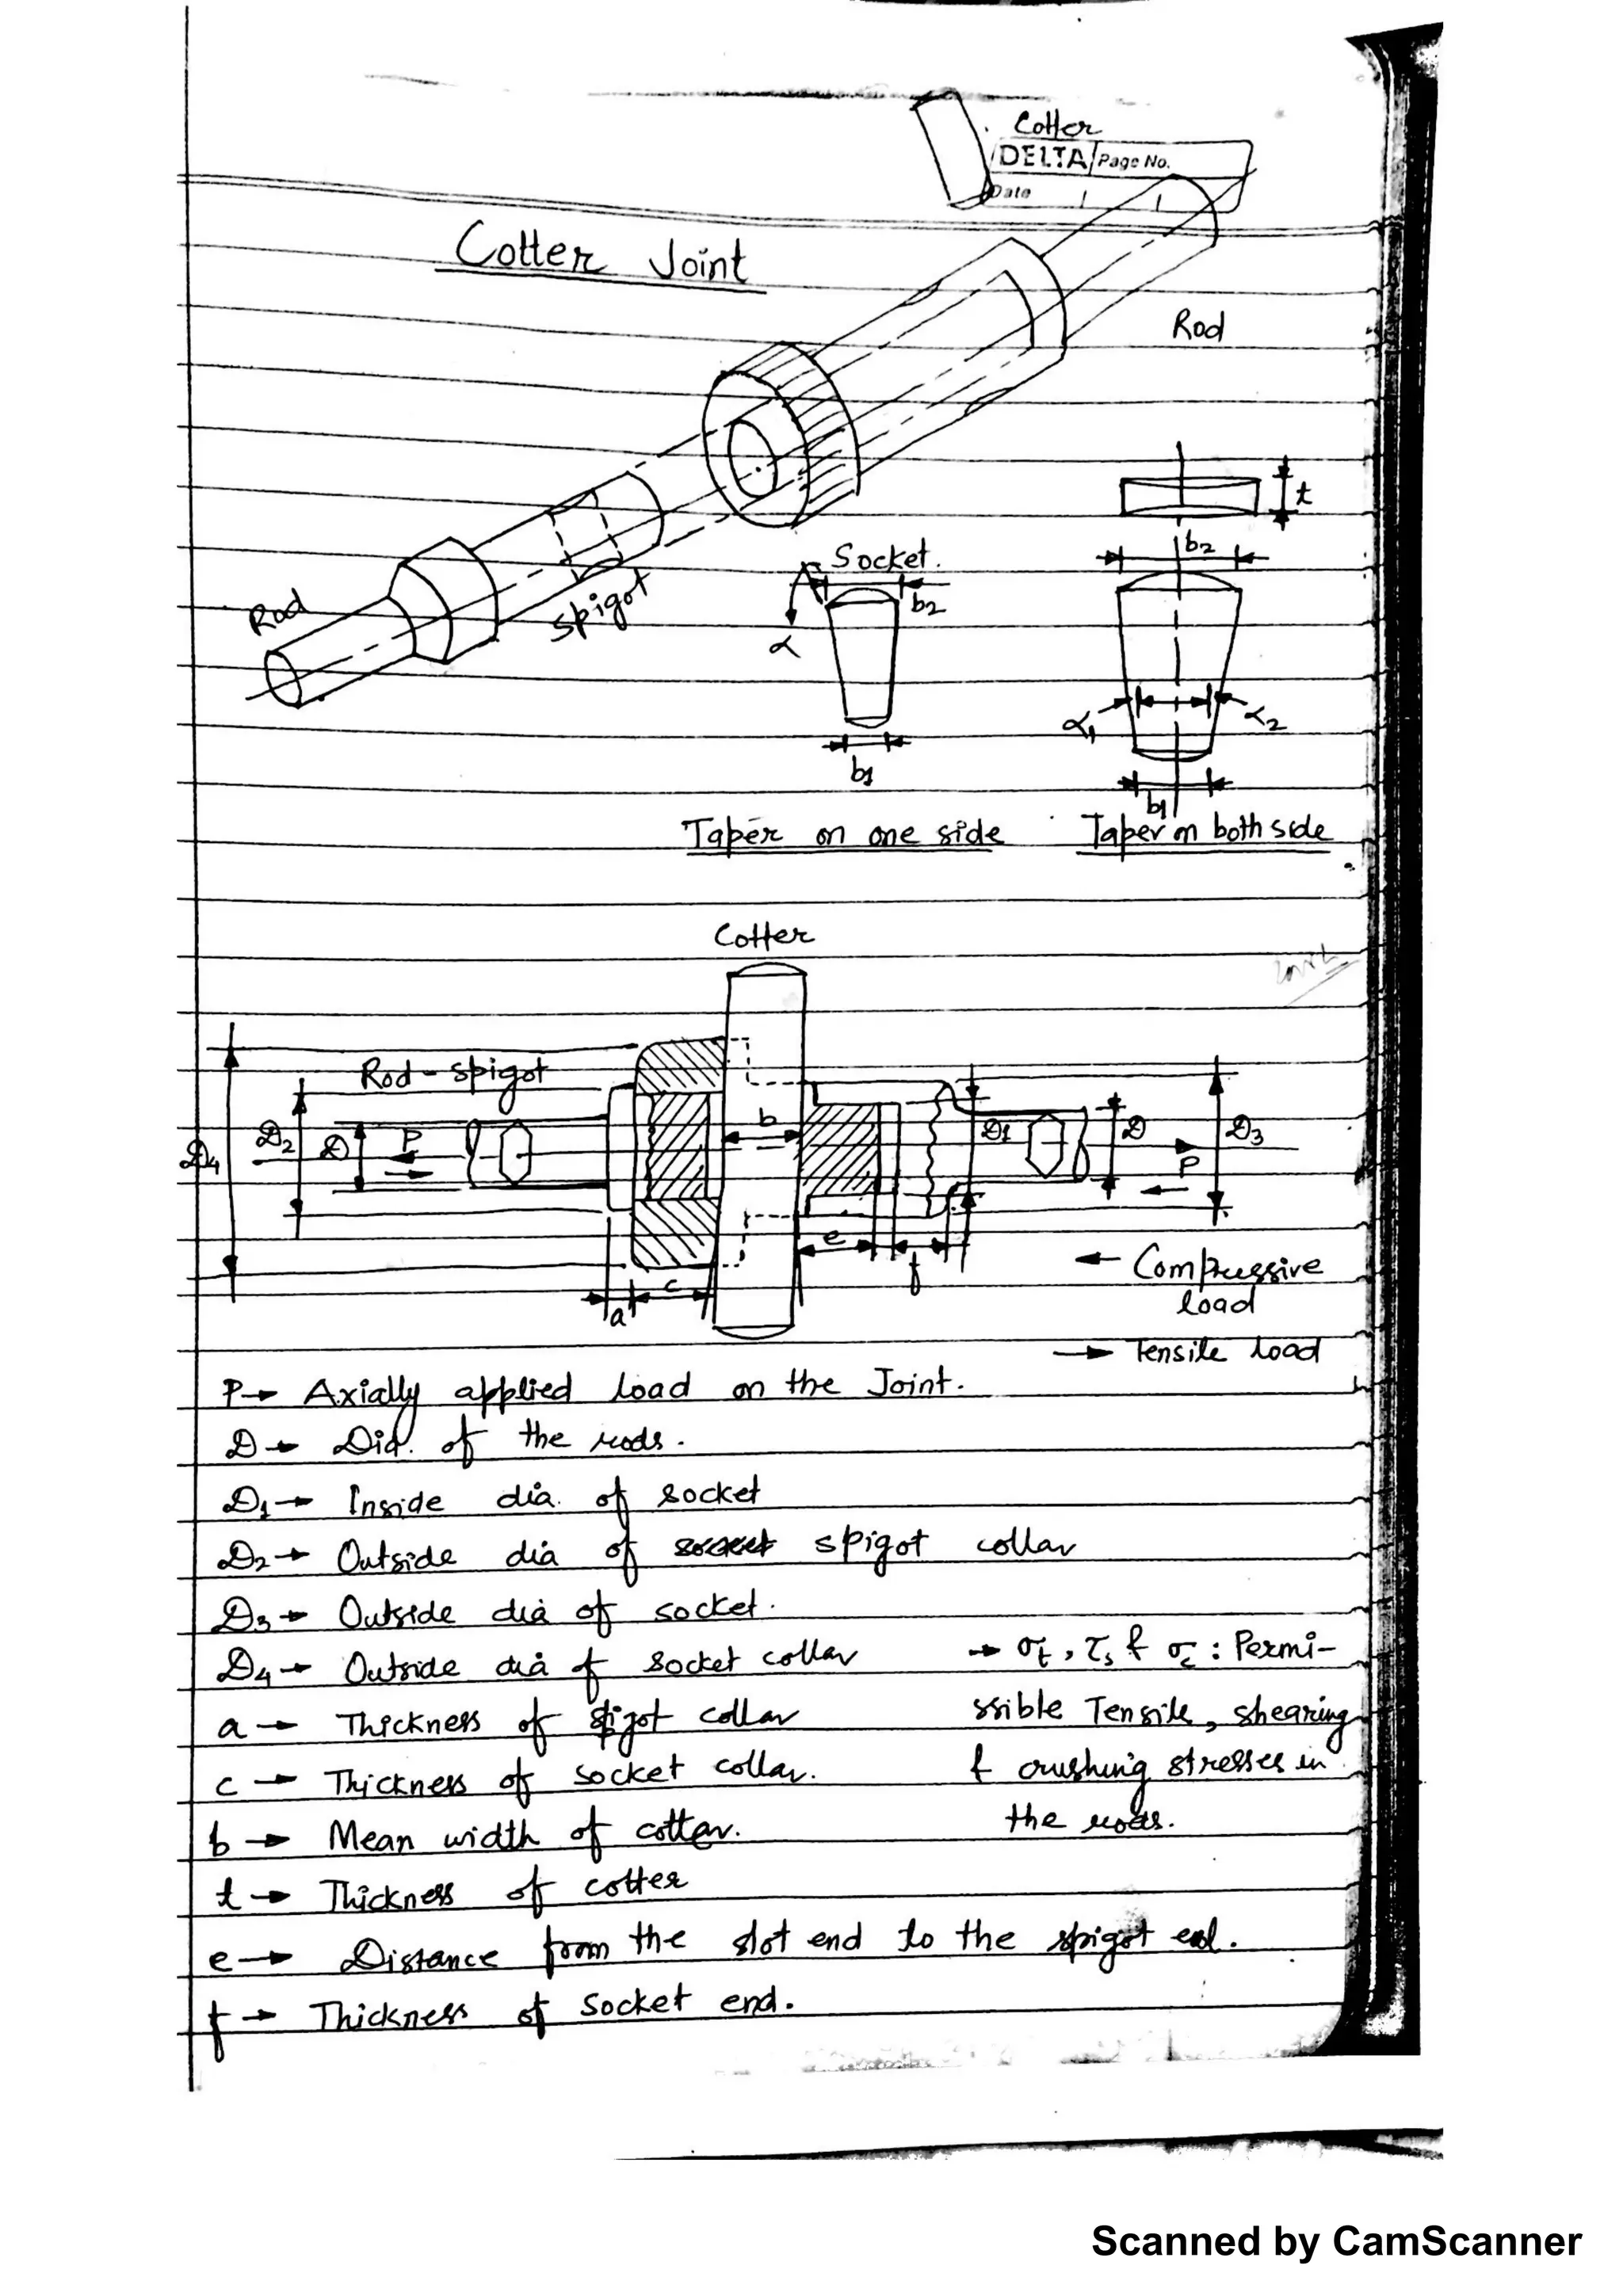 Cotter
DELTA Page No.
Date
Cotter Joint
Rod
t
b2
Socket.
b2
Rod
Spigot
α
α1
α2
b1
b1
Taper on one side
Taper on both side
Cotter
Rod - spigot
D4
D2
D
P
b
D1
D
D3
P
e
f
a
c
← Compressive
load
→ Tensile load
P → Axially applied load on the Joint.
D → Dia. of the rods.
D1 → Inside dia. of socket
D2 → Outside dia of spigot collar
D3 → Outside dia of socket.
D4 → Outside dia of socket collar
→ σt, τs & σc : Permi-
a → Thickness of spigot collar
ssible Tensile, shearing
c → Thickness of socket collar.
& crushing stresses in
b → Mean width of cotter.
the rods.
t → Thickness of cotter
e → Distance from the slot end to the spigot end.
f → Thickness of socket end.
Scanned by CamScanner